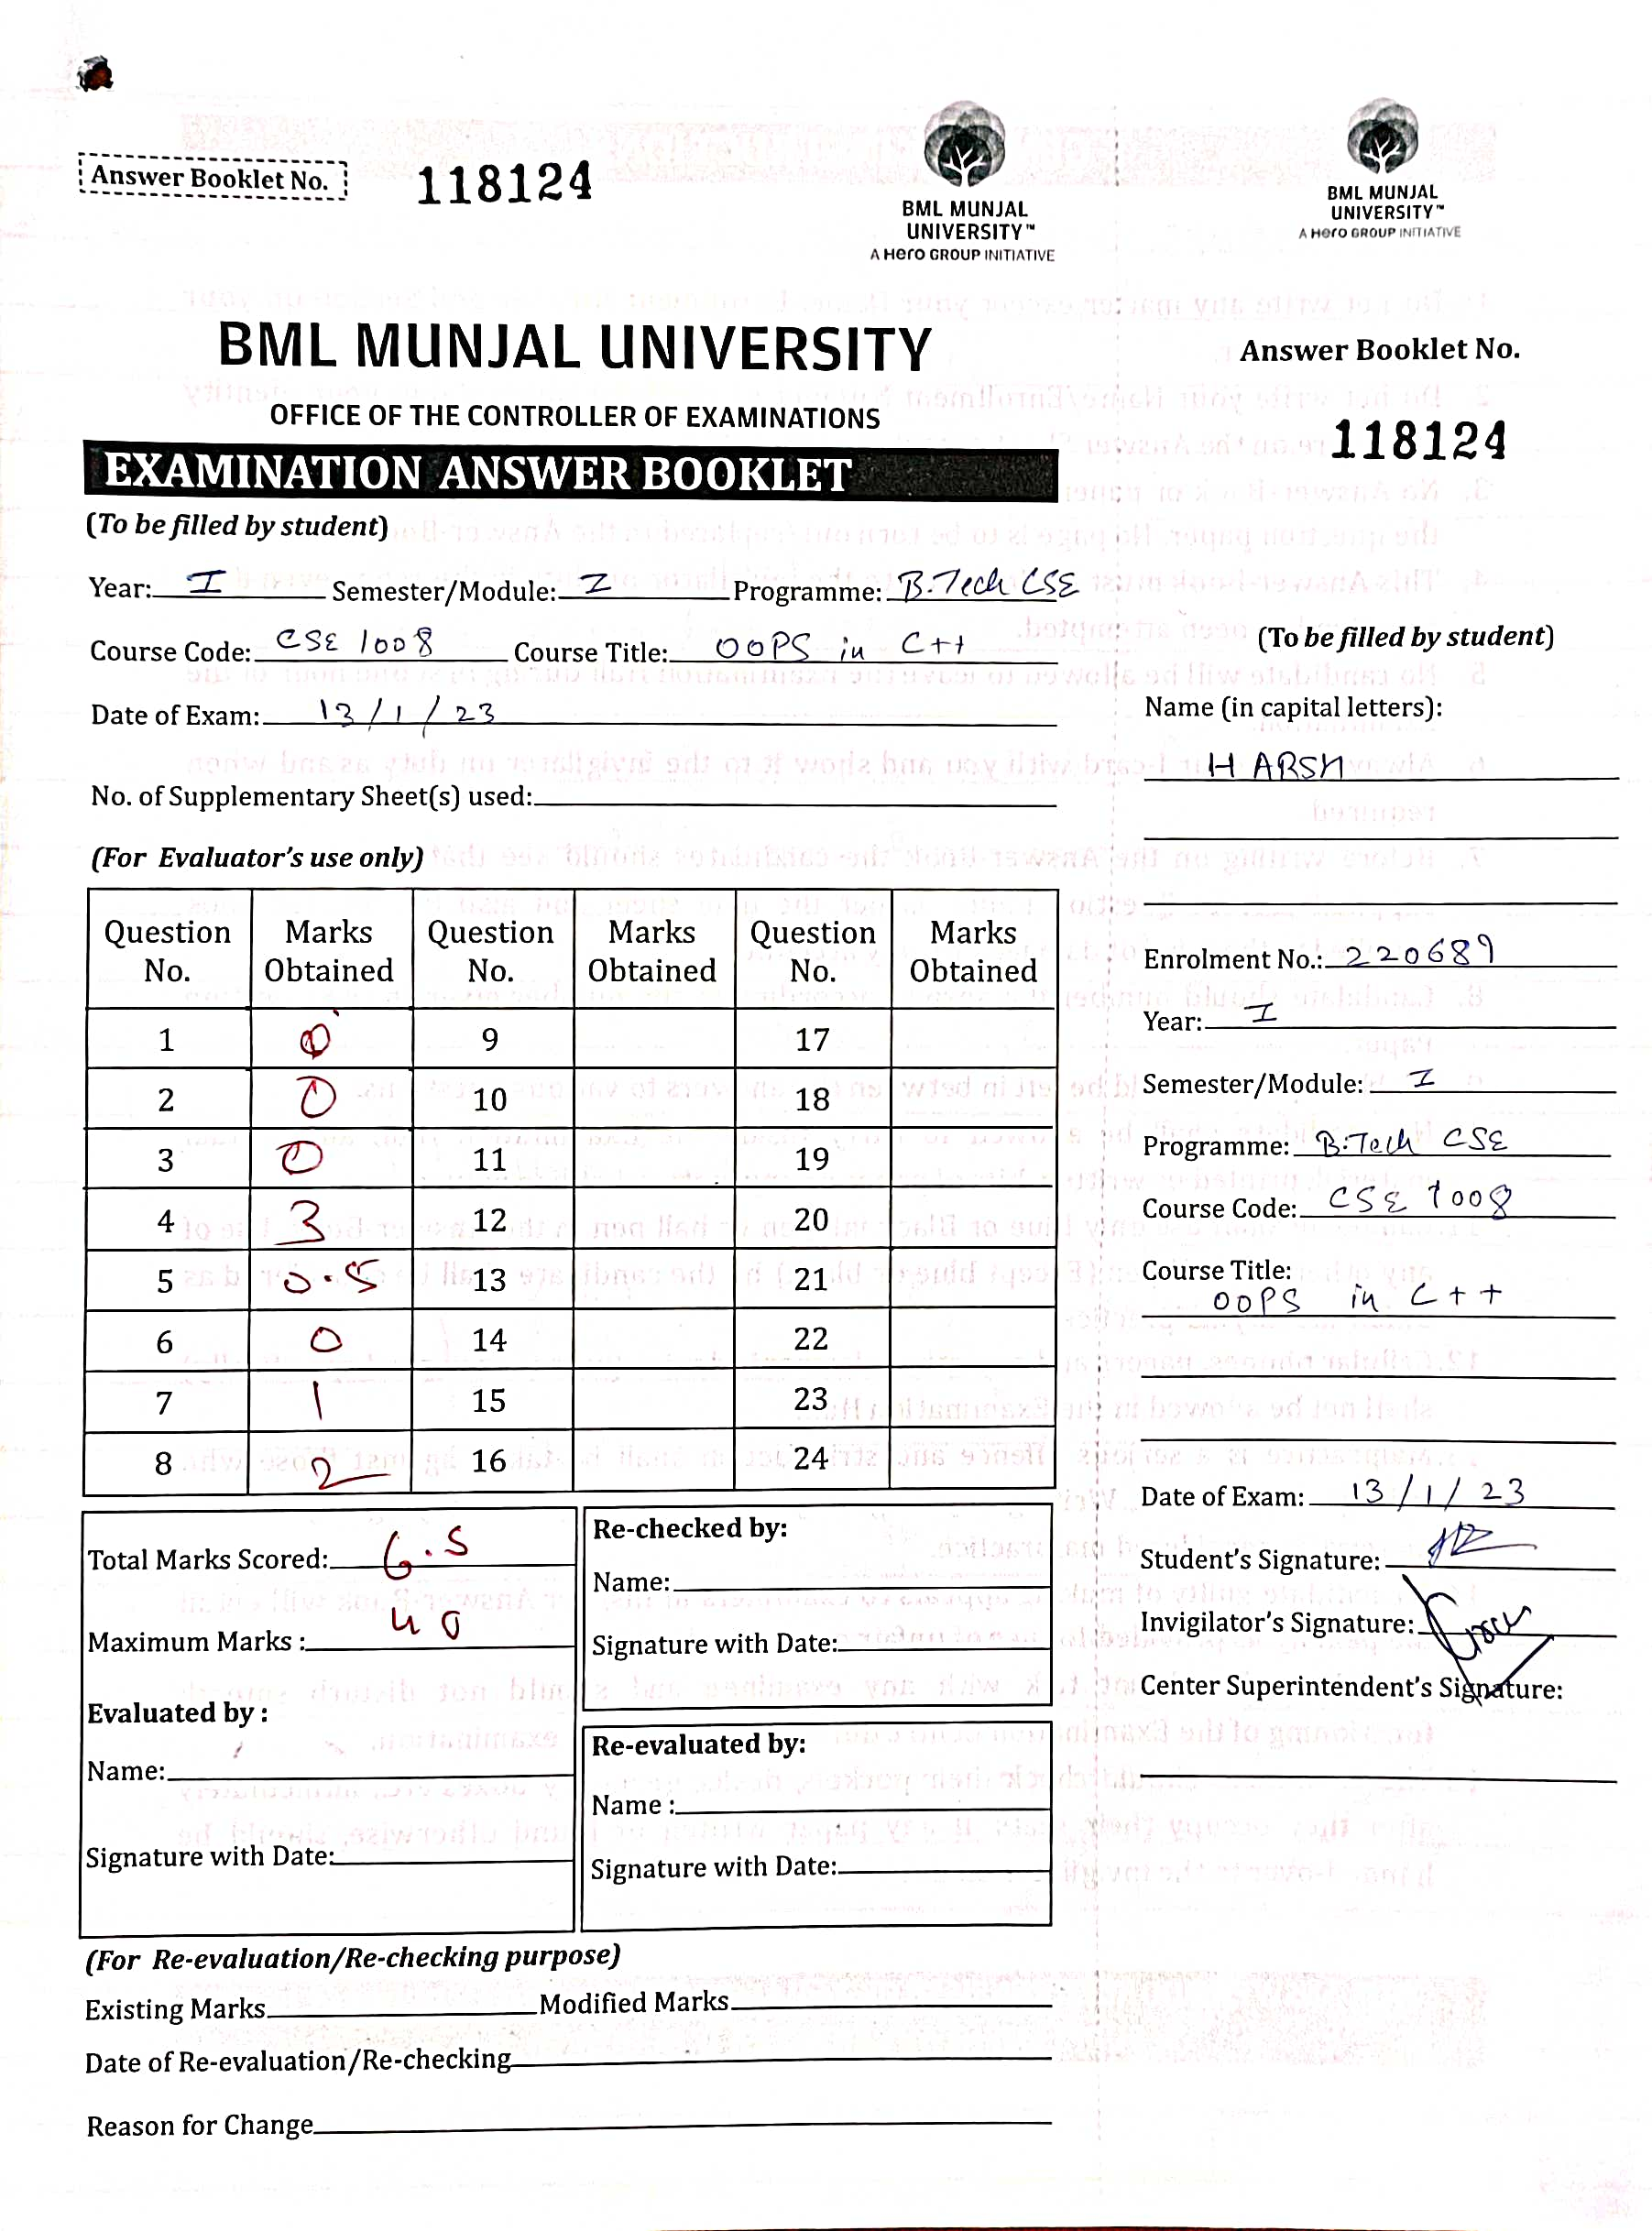 Answer Booklet No. 118124
BML MUNJAL
UNIVERSITY™
A Hero GROUP INITIATIVE
BML MUNJAL
UNIVERSITY™
A Hero GROUP INITIATIVE
BML MUNJAL UNIVERSITY
OFFICE OF THE CONTROLLER OF EXAMINATIONS
EXAMINATION ANSWER BOOKLET
(To be filled by student)
Year: I Semester/Module: I Programme: B.Tech CSE
Course Code: CSE 1008 Course Title: OOPS in C++
Date of Exam: 13/1/23
No. of Supplementary Sheet(s) used:
(For Evaluator's use only)
Question No. Marks Obtained Question No. Marks Obtained Question No. Marks Obtained
1 0 9 17
2 0 10 18
3 0 11 19
4 3 12 20
5 0.5 13 21
6 0 14 22
7 1 15 23
8 2 16 24
Total Marks Scored: 6.5
Maximum Marks : 40
Evaluated by :
Name:
Signature with Date:
Re-checked by:
Name:
Signature with Date:
Re-evaluated by:
Name :
Signature with Date:
(For Re-evaluation/Re-checking purpose)
Existing Marks Modified Marks
Date of Re-evaluation/Re-checking
Reason for Change
Answer Booklet No.
118124
(To be filled by student)
Name (in capital letters):
HARSH
Enrolment No.: 220689
Year: I
Semester/Module: I
Programme: B.Tech CSE
Course Code: CSE 1008
Course Title:
OOPS in C++
Date of Exam: 13/1/23
Student's Signature:
Invigilator's Signature:
Center Superintendent's Signature: